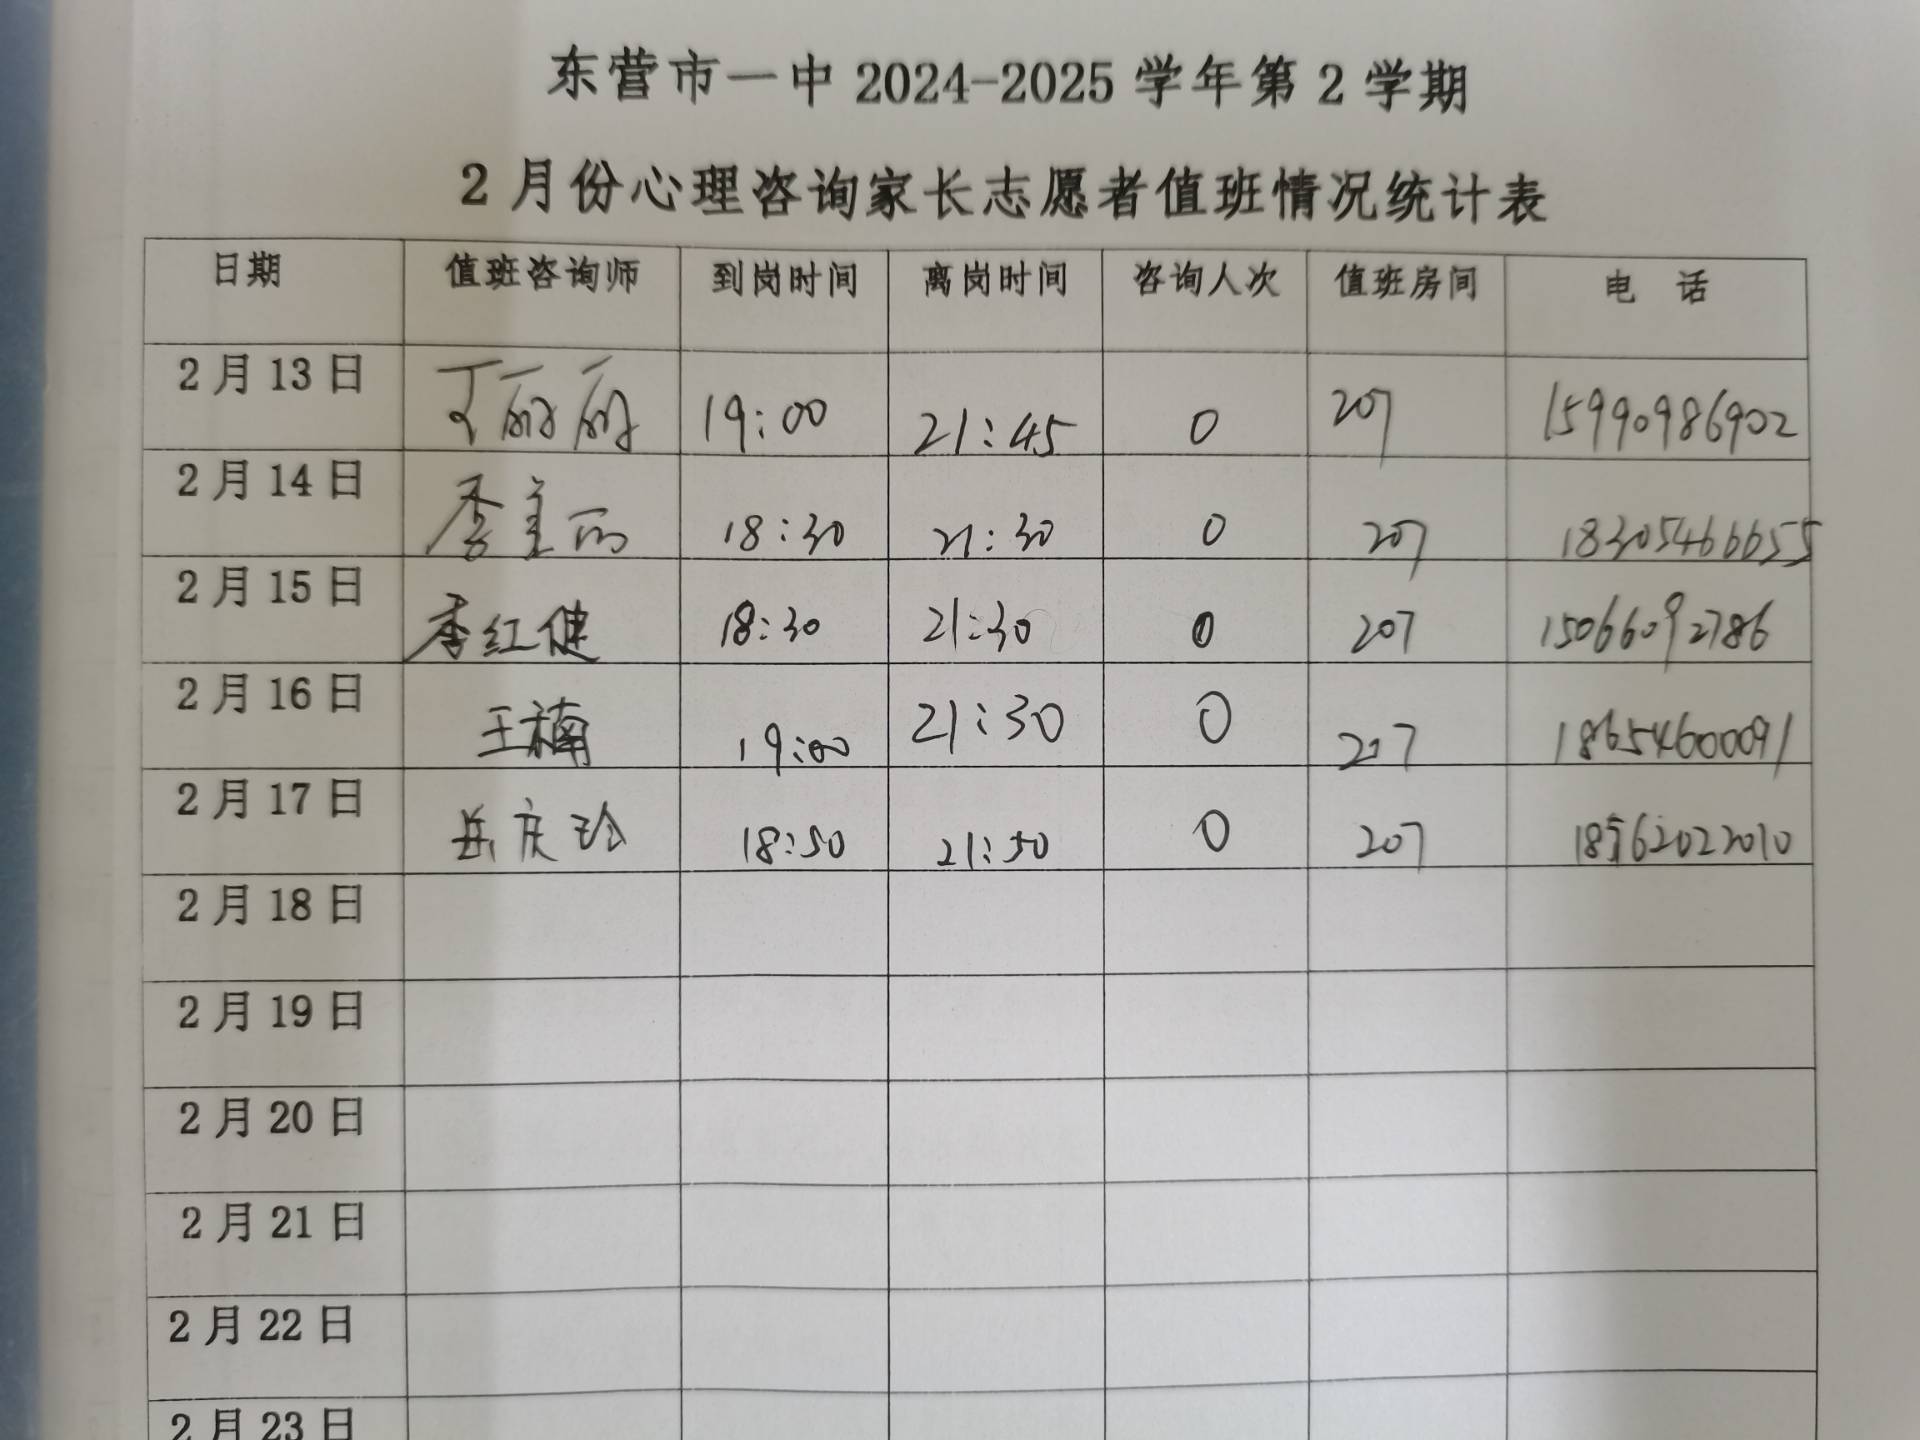 东营市一中 2024-2025 学年第 2 学期
2 月份心理咨询家长志愿者值班情况统计表
日期 值班咨询师 到岗时间 离岗时间 咨询人次 值班房间 电 话
2 月 13 日 丁丽丽 19:00 21:45 0 207 15990986902
2 月 14 日 李美丽 18:30 21:30 0 207 18305466655
2 月 15 日 李红健 18:30 21:30 0 207 15066092786
2 月 16 日 王楠 19:00 21:30 0 207 18654600091
2 月 17 日 岳庆玲 18:50 21:50 0 207 18562022010
2 月 18 日
2 月 19 日
2 月 20 日
2 月 21 日
2 月 22 日
2 月 23 日